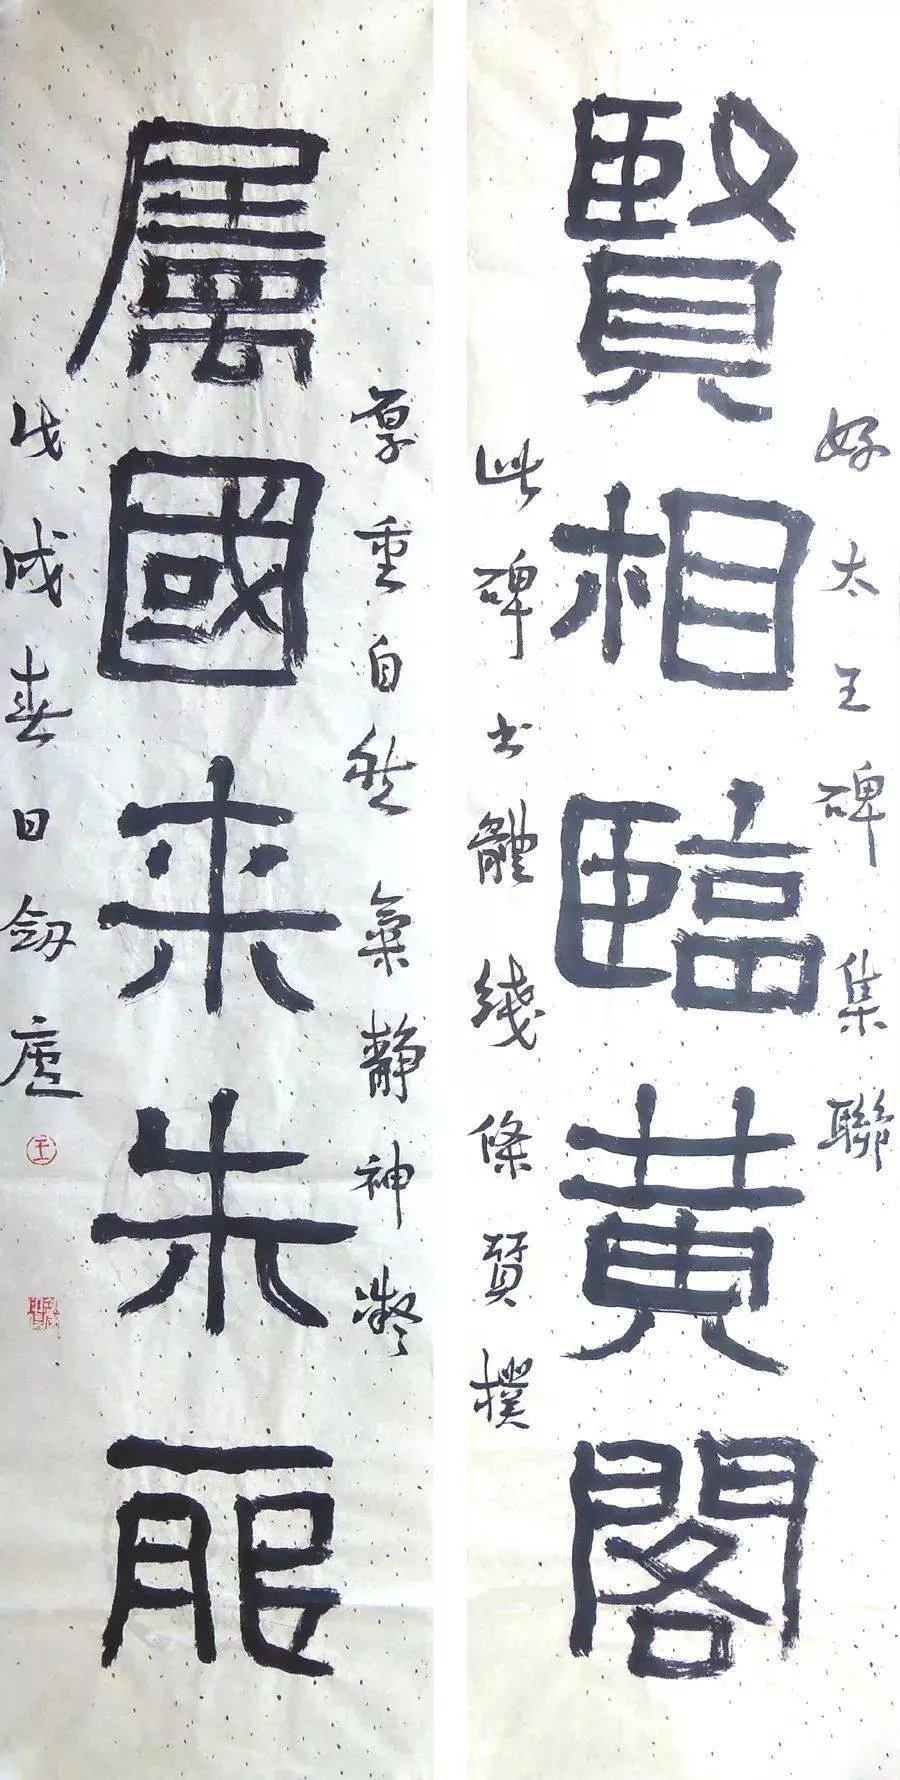 好太王碑集聯
賢相臨黃閣
此碑书體綫條質樸
厚重自然氣靜神凝
屬國来朱
戊戌春日劍廬